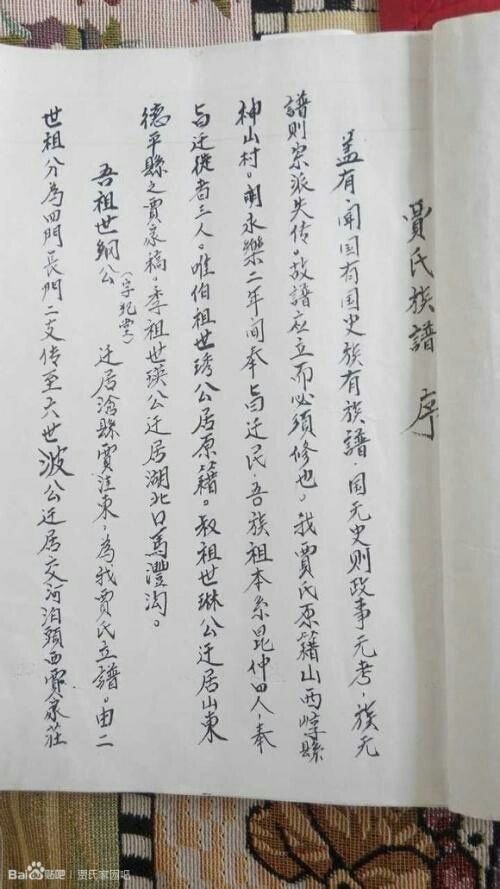 賈氏族譜 序
盖有,闻国有国史族有族譜.国无史则政事无考,族无
譜则宗派失传。故譜应立而必须修也。我賈氏原籍山西崞縣
神山村。明永樂二年间奉旨迁民.吾族祖本系昆仲四人,奉
旨迁徙者三人。唯伯祖世琇公居原籍。叔祖世琳公迁居山東
德平縣之賈家橋.季祖世瑛公迁居湖北口馬灃沟。
吾祖世綱公(字紀堂)迁居滄縣賈洼東,為我賈氏立譜。由二
世祖分為四門長門二支传至六世波公迁居交河泊頭西賈家莊
Bai百度贴吧 | 贾氏家园吧